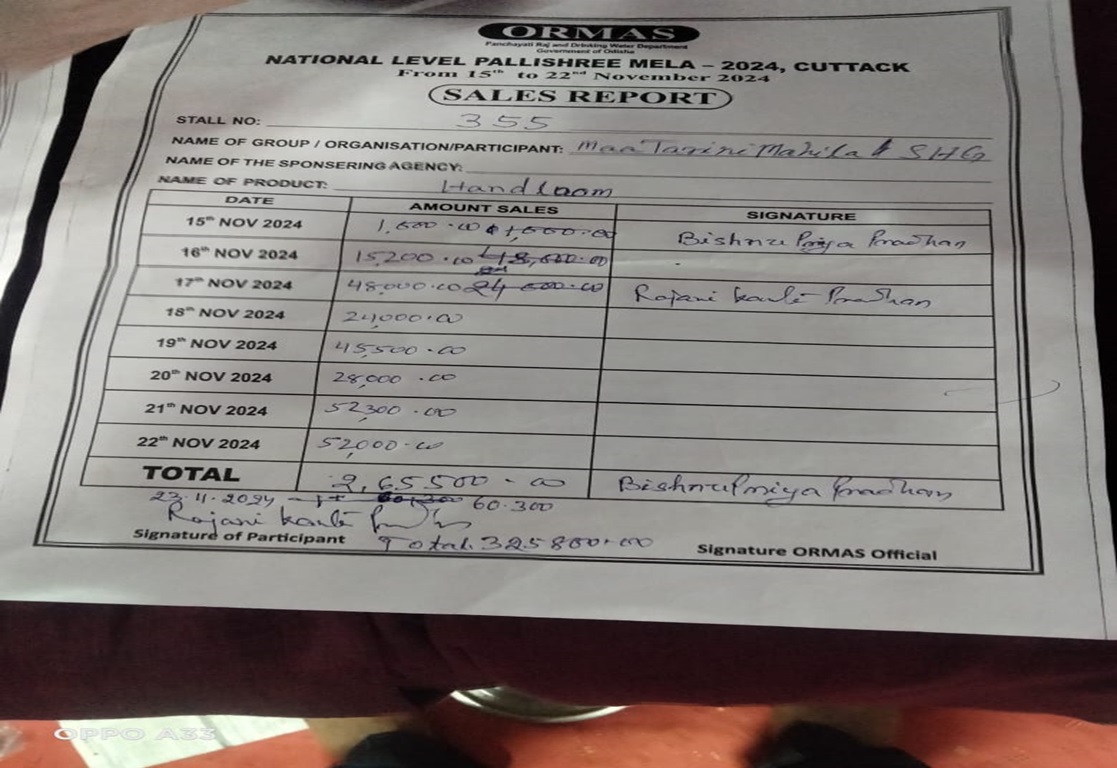 ORMAS
Panchayati Raj and Drinking Water Department
Government of Odisha
NATIONAL LEVEL PALLISHREE MELA – 2024, CUTTACK
From 15th to 22nd November 2024
SALES REPORT
STALL NO: 355
NAME OF GROUP / ORGANISATION/PARTICIPANT: Maa Tarini Mahila SHG
NAME OF THE SPONSERING AGENCY:
NAME OF PRODUCT: Handloom
DATE AMOUNT SALES SIGNATURE
15th NOV 2024 Bishnu Priya Pradhan
16th NOV 2024 15,200.00
17th NOV 2024 48,000.00 Rajani Pradhan
18th NOV 2024
19th NOV 2024 45,500.00
20th NOV 2024 28,000.00
21st NOV 2024 52,300.00
22nd NOV 2024 52,000.00
TOTAL 2,65,500.00 Bishnu Priya Pradhan
23.11.2024 60.300
Rajani
Signature of Participant Total. 325800.00 Signature ORMAS Official
OPPO A33